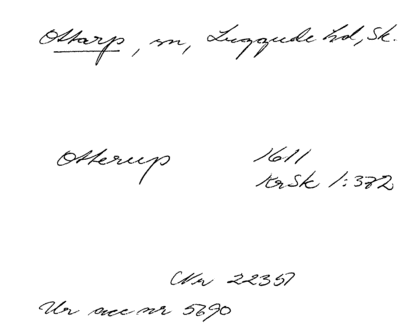 Ottarp, sn, Luggude hd, Sk.
Otterup 1611
KrSk 1:372
Nr 22357
Ur acc nr 5690